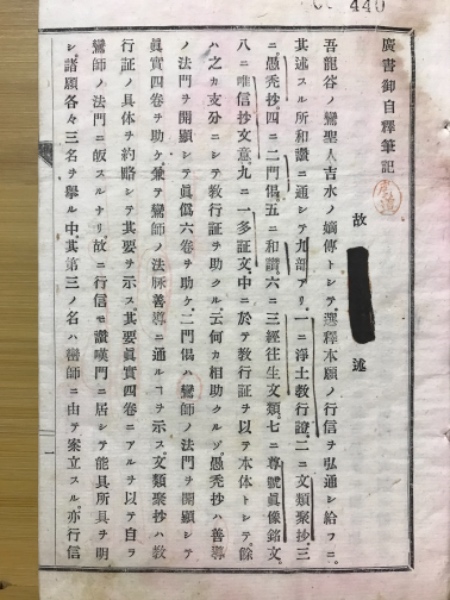 440
廣書御自釋筆記
故
述
吾龍谷ノ鸞聖人吉水ノ嫡傳トシテ選釋本願ノ行信ヲ弘通シ給フニ
其述スル所和讃ニ通シテ九部アリ一ニ浄土教行證二ニ文類聚抄三
ニ愚禿抄四ニ二門偈五ニ和讃六ニ三經往生文類七ニ尊號眞像銘文
八ニ唯信抄文意九ニ一多証文中ニ於テ教行証ヲ以テ本体トシテ餘
ハ之カ支分ニシテ教行証ヲ助クル云何カ相助クルゾ愚禿抄ハ善導
ノ法門ヲ開顯シテ眞僞六卷ヲ助ケ二門偈ハ鸞師ノ法門ヲ開顯シテ
眞實四卷ヲ助ケ兼テ鸞師ノ法脉善導ニ通ルヿヲ示ス文類聚抄ハ教
行証ノ具体ヲ約略シテ其要ヲ示ス其要眞實四卷ニアルヲ以テ自ラ
鸞師ノ法門ニ皈スルナリ故ニ行信モ讃嘆門ニ居シテ能具所具ヲ明
シ諸願各々三名ヲ擧ル中其第三ノ名ハ鸞師ニ由テ案立スル亦行信
一